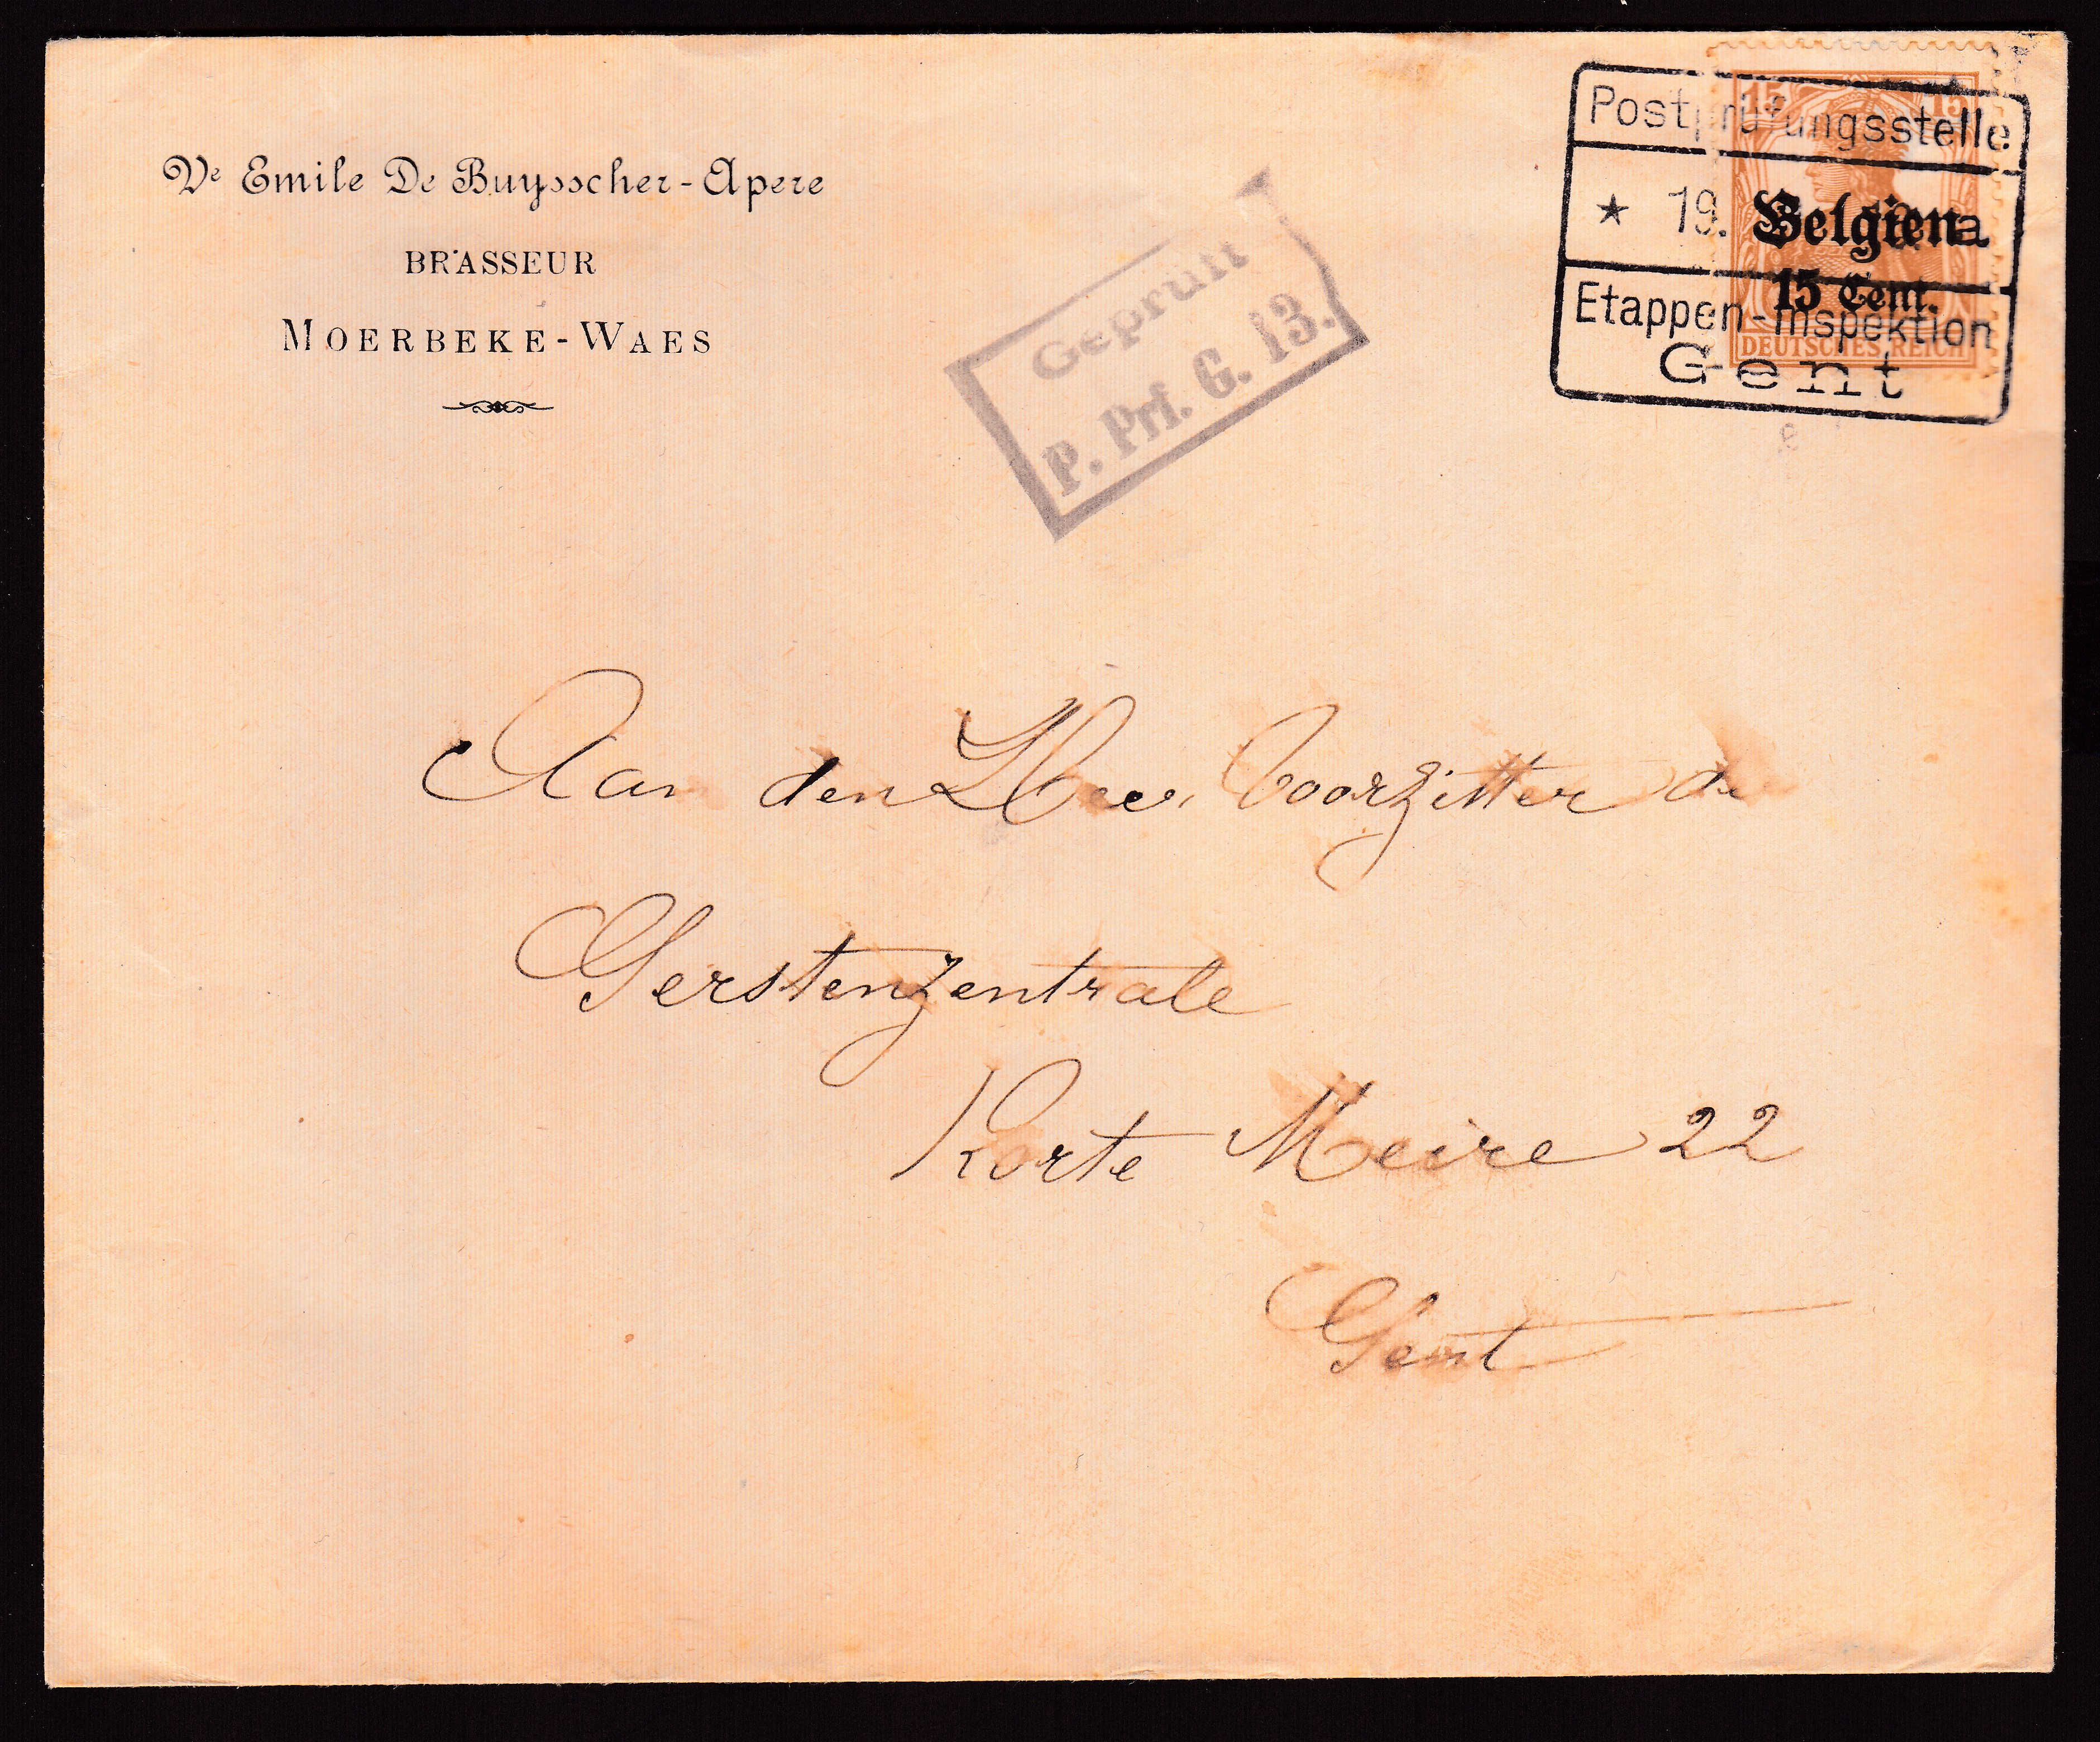 Ve Emile De Buysscher-Apere
BRASSEUR
MOERBEKE-WAES
Geprüft
P. Prf. G. 13.
15 15
Postprüfungsstelle
* 19. a
Belgien
15 Cent.
DEUTSCHES REICH
Etappen-Inspektion
Gent
Aan den Heer Voorzitter de
Gerstenzentrale
Korte Meire 22
Gent